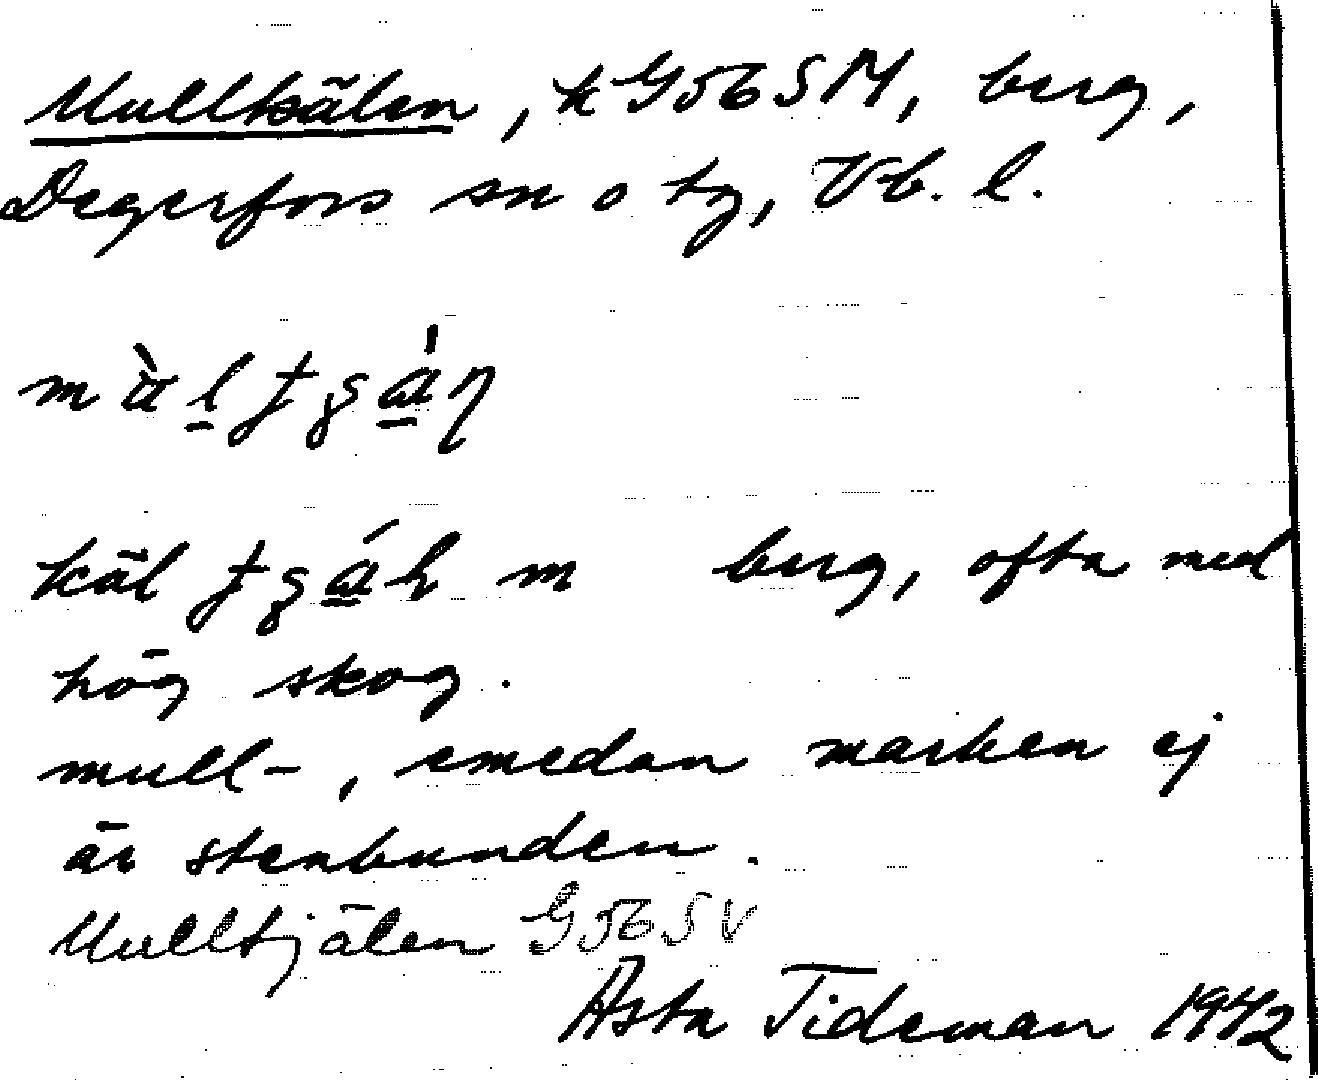 Mullkälen, k G56SM, berg,
Degerfors sn o tg, Vb. l.
käl m berg, ofta med
hög skog.
mull-, emedan marken ej
är stenbunden.
Mulltjälen G56SV
Asta Tideman 1942